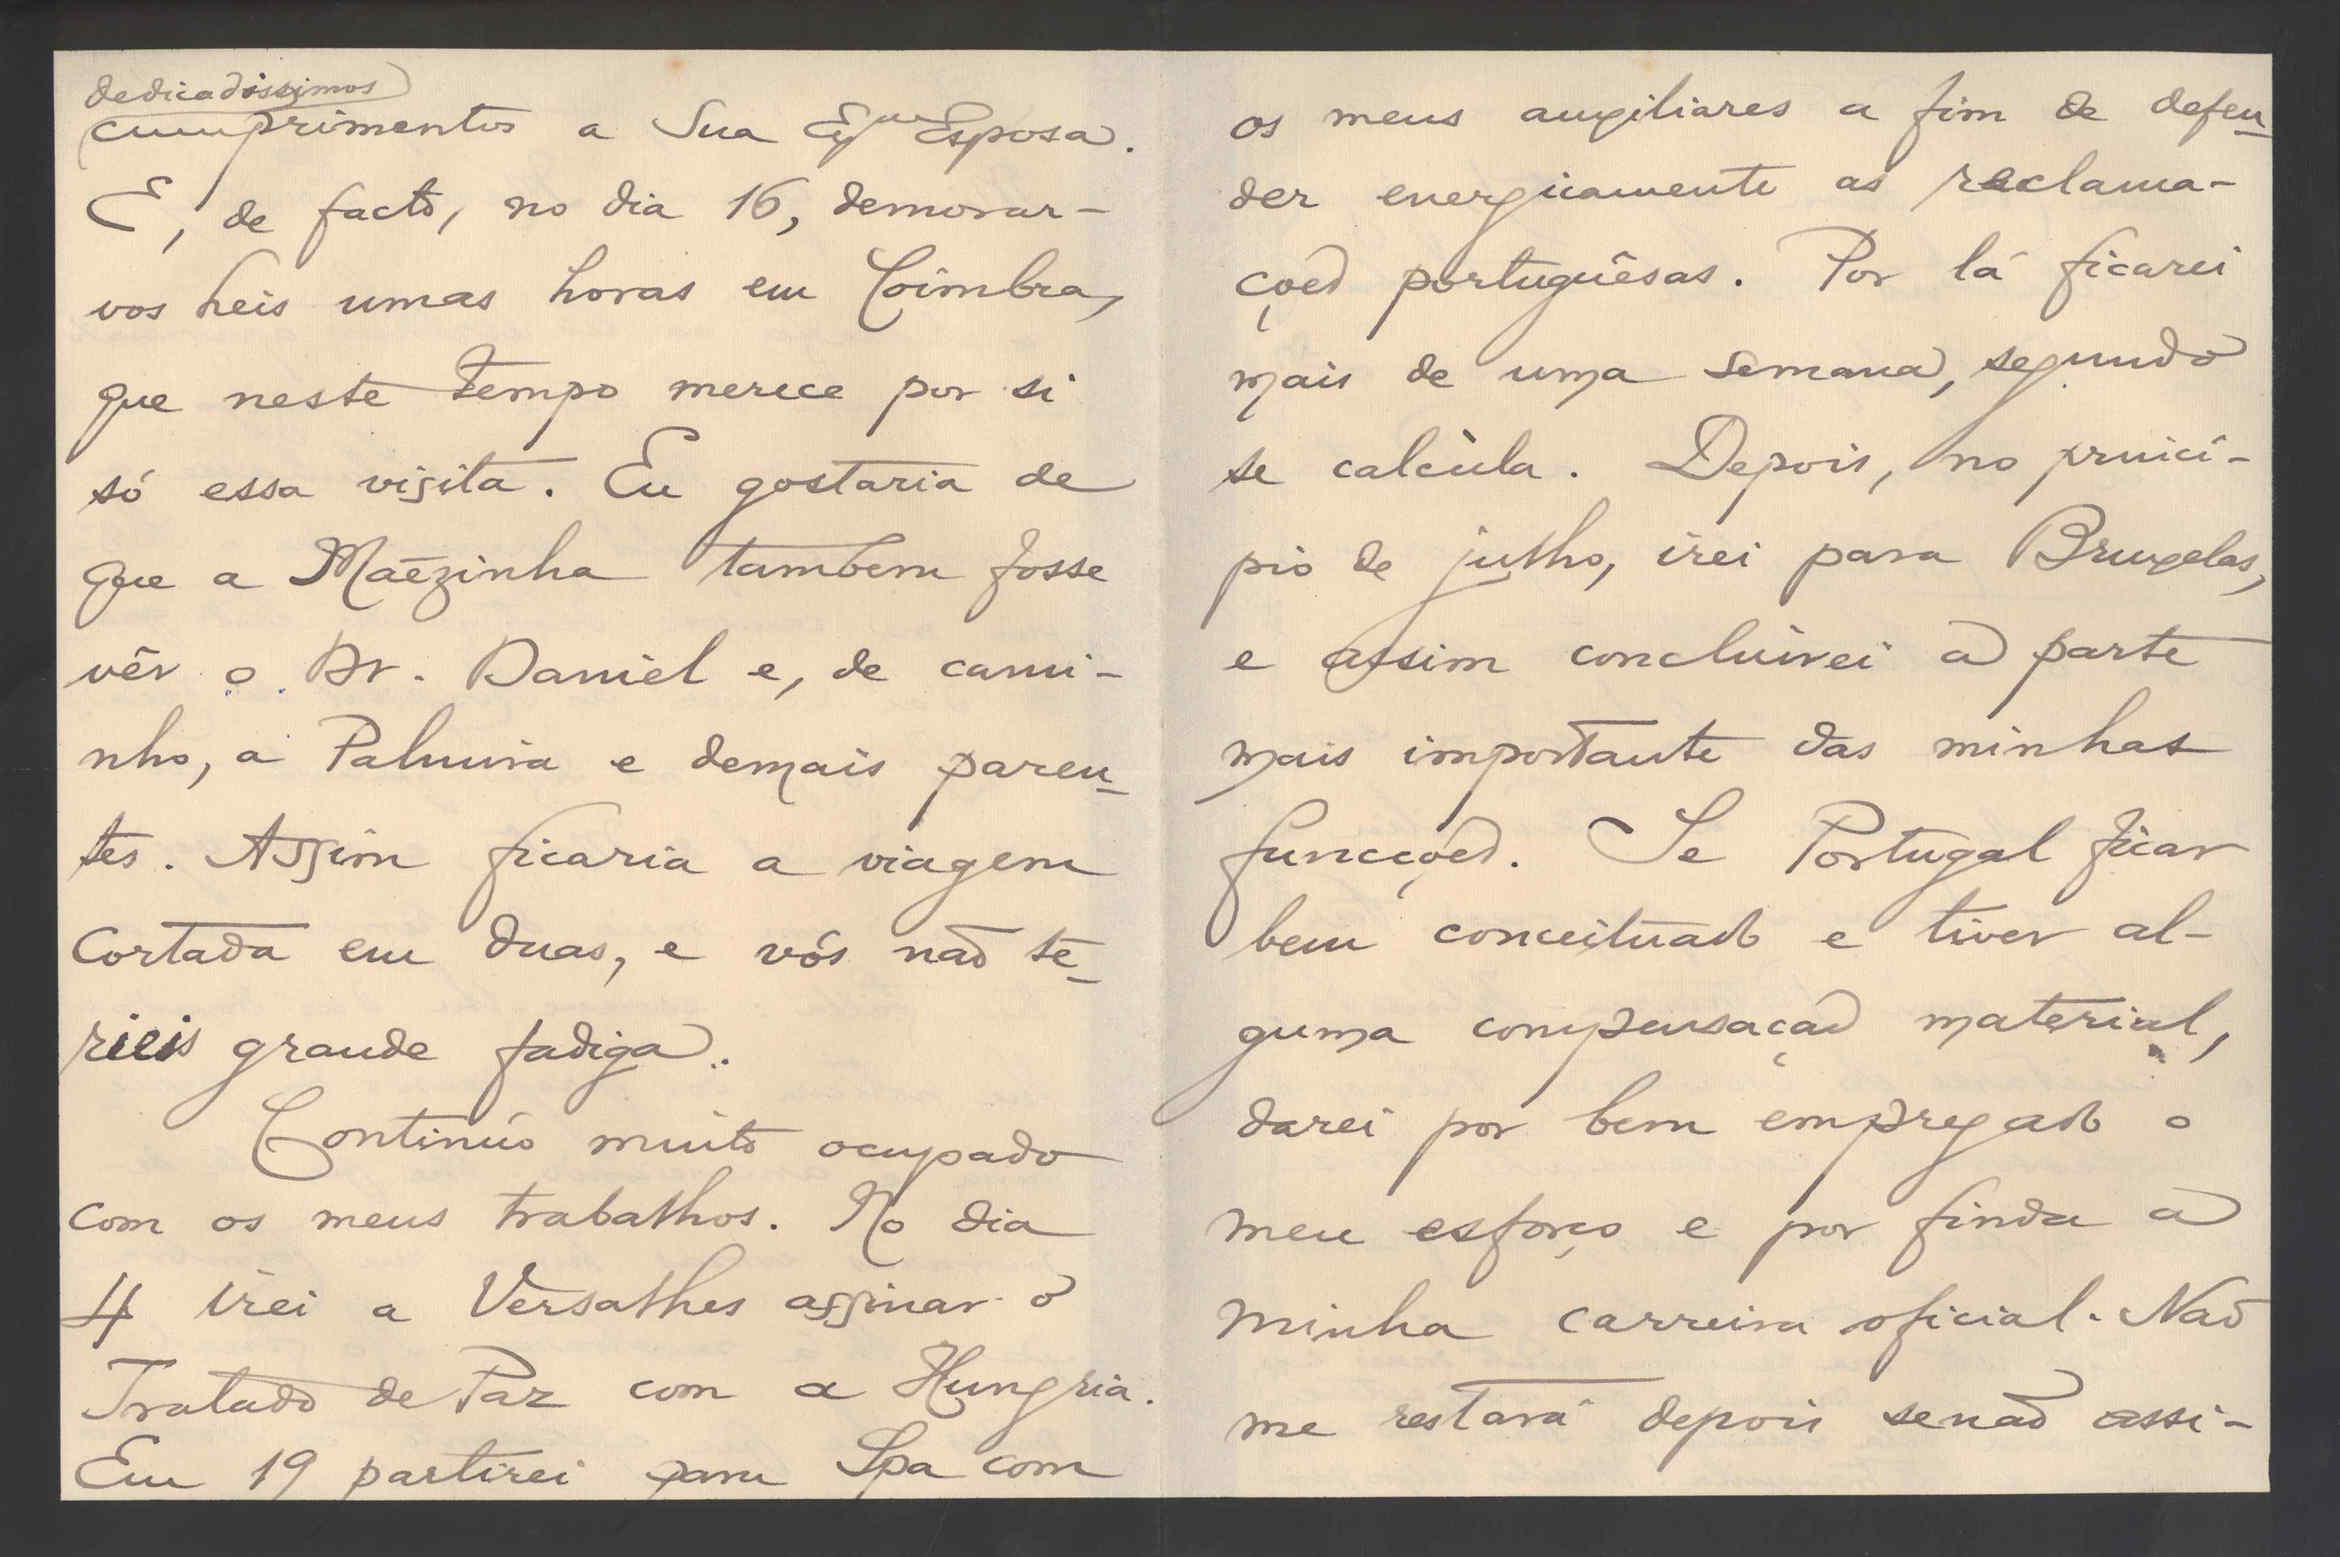 dedicadissimos
cumprimentos a Sua Exma Esposa.
E, de facto, no dia 16, demorar-
vos heis umas horas em Coimbra,
que neste tempo merece por si
só essa visita. Eu gostaria de
que a Mãezinha tambem fosse
vêr o Dr. Daniel e, de cami-
nho, a Palmira e demais paren-
tes. Assim ficaria a viagem
cortada em duas, e vós não te-
rieis grande fadiga.
Continúo muito ocupado
com os meus trabalhos. No dia
4 irei a Versalhes assinar o
Tratado de Paz com a Hungria.
Em 19 partirei para Spa com
os meus auxiliares a fim de defen-
der energicamente as reclama-
ções portuguêsas. Por lá ficarei
mais de uma semana, segundo
se calcula. Depois, no princi-
pio de julho, irei para Bruxelas,
e assim concluirei a parte
mais importante das minhas
funcções. Se Portugal ficar
bem conceituado e tiver al-
guma compensação material,
darei por bem empregado o
meu esforço e por finda a
minha carreira oficial. Não
me restará depois senão assi-